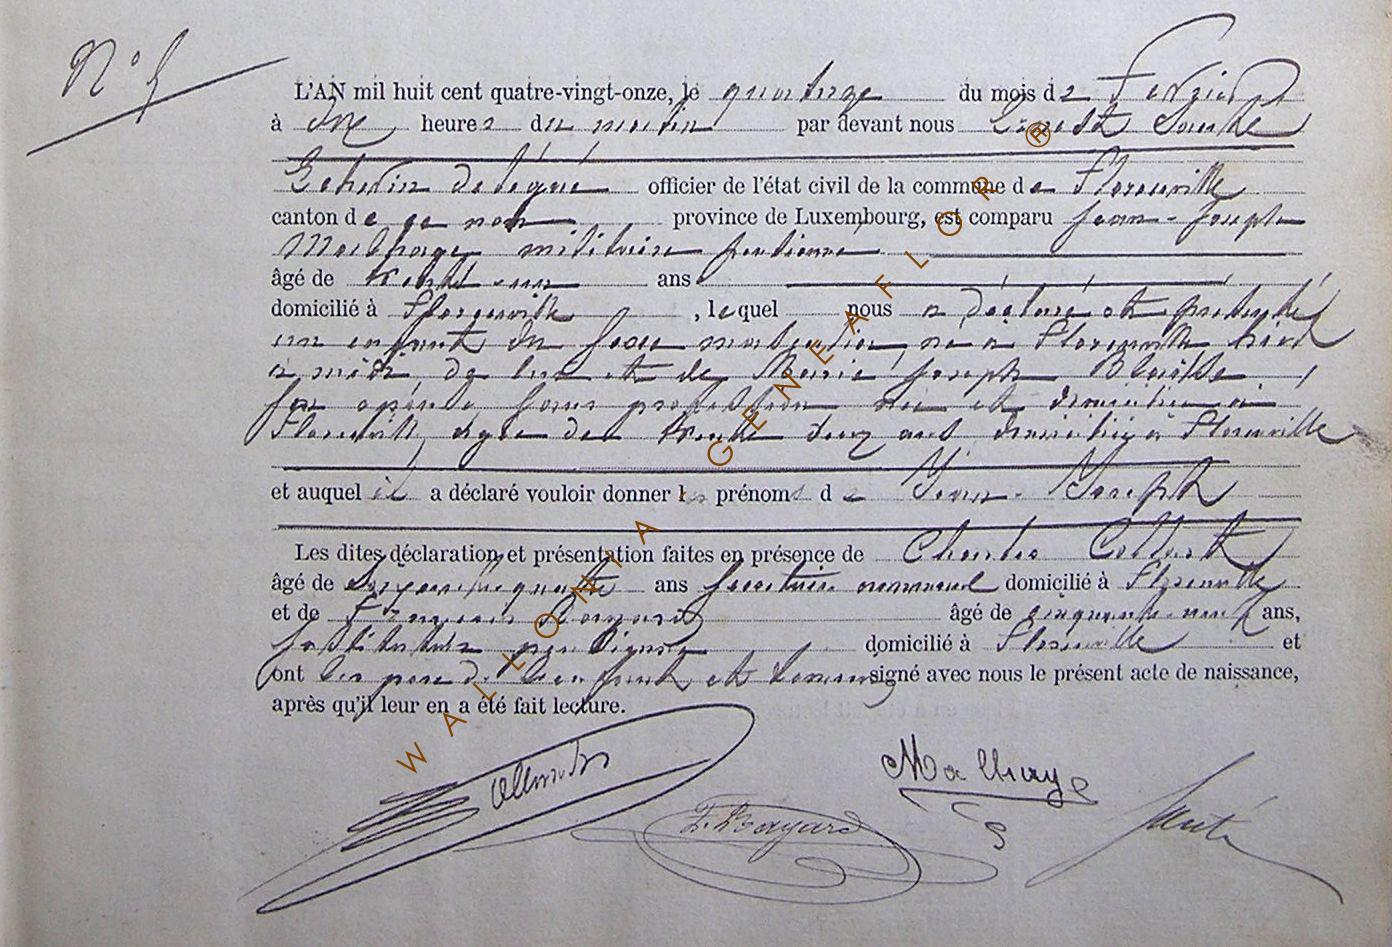 N° 5
L'AN mil huit cent quatre-vingt-onze, le quatorze du mois de Février
à dix heures du matin par devant nous Ernest Sauté
Echevin délégué officier de l'état civil de la commune de Florenville
canton de ce nom province de Luxembourg, est comparu Jean-Joseph
Malhage militaire pensionné
âgé de trente-un ans
domicilié à Florenville, lequel nous a déclaré et présenté
un enfant du sexe masculin, né à Florenville hier
à midi de lui et de Marie Joseph
son épouse sans profession née et domiciliée à
Florenville, âgée de trente deux ans domiciliée à Florenville
et auquel il a déclaré vouloir donner les prénoms de Jean-Joseph
Les dites déclaration et présentation faites en présence de Charles Collart
âgé de soixante quatre ans domicilié à Florenville
et de François Bayard âgé de cinquante neuf ans,
domicilié à Florenville et
ont les père de l'enfant et témoins signé avec nous le présent acte de naissance,
après qu'il leur en a été fait lecture.
Malhage
F. Bayard
Sauté
WALLONIA GENEAFLOR ®